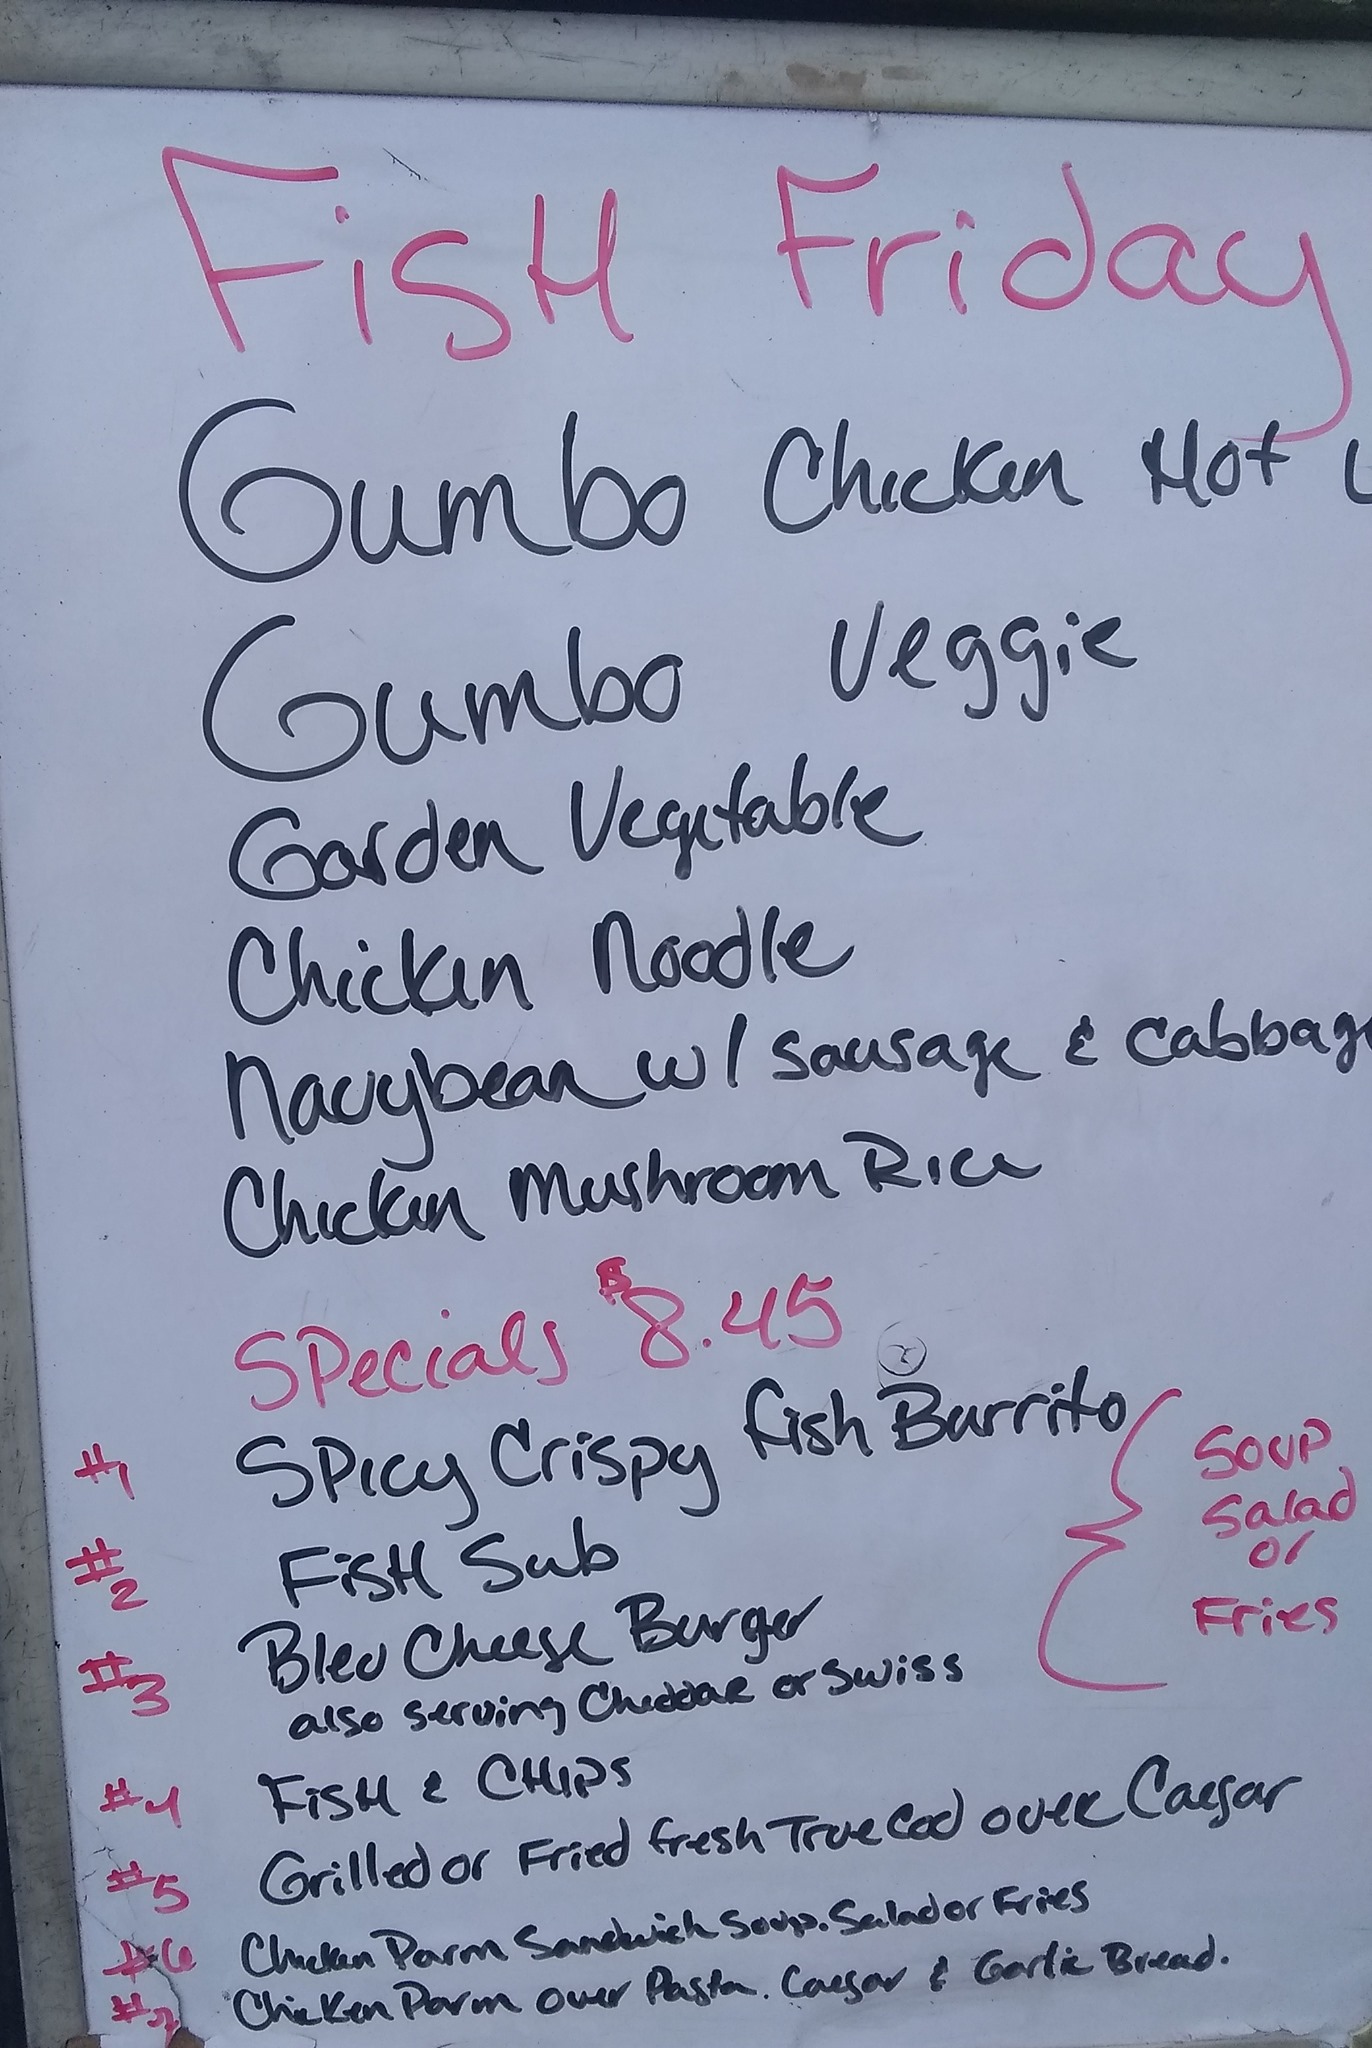 FisH Friday
Gumbo Chicken Hot
Gumbo Veggie
Garden Vegetable
Chicken Noodle
Navybean w/ sausage & Cabbag
Chicken Mushroom Rice
SPecials $8.45
#1 SPicy Crispy Fish Burrito
#2 FisH Sub
#3 Bleu Cheese Burger
also serving Cheddar or Swiss
Soup
Salad
or
Fries
#4 FisH & CHIPS
#5 Grilled or Fried fresh True Cod over Caesar
#6 Chicken Parm Sandwich Soup. Salad or Fries
#7 Chicken Parm over Pasta. Caesar & Garlic Bread.